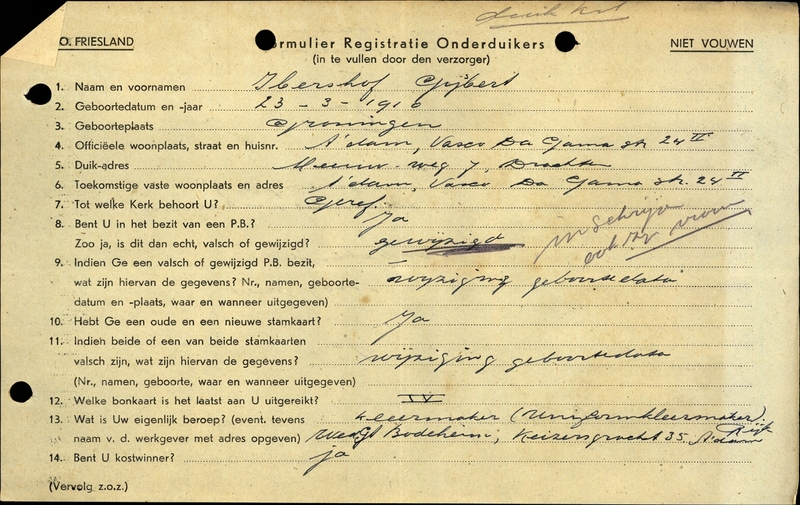 O. FRIESLAND
ormulier Registratie Onderduikers
NIET VOUWEN
(in te vullen door den verzorger)
1. Naam en voornamen Ibershof Gijbert
2. Geboortedatum en -jaar 23 - 3 - 1910
3. Geboorteplaats Groningen
4. Officiëele woonplaats, straat en huisnr. A'dam, Vasco Da Gama str 24 II
5. Duik-adres Meeuw-weg 7, Drachten
6. Toekomstige vaste woonplaats en adres A'dam, Vasco Da Gama str. 24 II
7. Tot welke Kerk behoort U? Geref.
8. Bent U in het bezit van een P.B.? Ja
Zoo ja, is dit dan echt, valsch of gewijzigd? gewijzigd
ook vrouw
9. Indien Ge een valsch of gewijzigd P.B. bezit,
wat zijn hiervan de gegevens? Nr., namen, geboorte- wijziging geboortedata
datum en -plaats, waar en wanneer uitgegeven)
10. Hebt Ge een oude en een nieuwe stamkaart? Ja
11. Indien beide of een van beide stamkaarten
valsch zijn, wat zijn hiervan de gegevens? wijziging geboortedata
(Nr., namen, geboorte, waar en wanneer uitgegeven)
12. Welke bonkaart is het laatst aan U uitgereikt? IV
13. Wat is Uw eigenlijk beroep? (event. tevens kleermaker (Uniformkleermaker).
naam v. d. werkgever met adres opgeven) Bodeheim, Keizersgracht 35. A'dam
14. Bent U kostwinner? ja
(Vervolg z.o.z.)